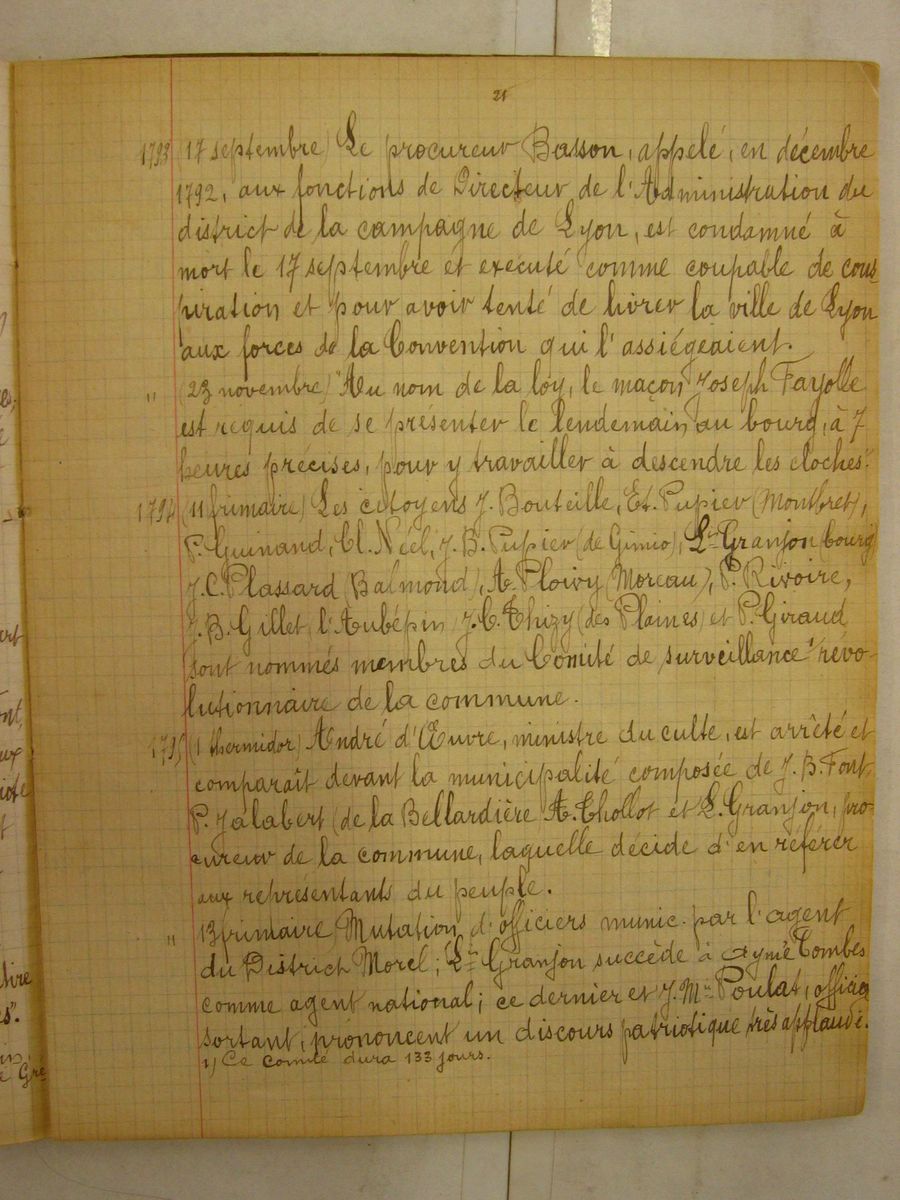 21
1793 (17 septembre) Le procureur Basson, appelé, en décembre
1792, aux fonctions de Directeur de l'Administration du
district de la campagne de Lyon, est condamné à
mort le 17 septembre et exécuté comme coupable de cons-
piration et pour avoir tenté de livrer la ville de Lyon
aux forces de la Convention qui l'assiégeaient.
" (23 novembre) "Au nom de la loy, le maçon Joseph Fayolle
est requis de se présenter le lendemain, au bourg, à 7
heures précises, pour y travailler à descendre les cloches".
1794 (11 frimaire) Les citoyens J. Bouteille, Et. Pupier (Montbret),
P. Guinand, Cl. Néel, J. B. Pupier (de Gimio), Lt Granjon (bourg)
J. C. Plassard (Balmond), A. Ploivy (Moreau), P. Rivoire,
J. B. Gillet, l'Aubépin, J. C. Thizy (des Plaines) et P. Giraud
sont nommés membres du Comité de surveillance 1) révo-
lutionnaire de la commune.
1795 (1 thermidor) André d'Œuvre, ministre du culte, est arrêté et
comparaît devant la municipalité composée de J. B. Font,
P. Jalabert (de la Bellardière A. Thollot et L. Granjon, pro-
cureur de la commune, laquelle décide d'en référer
aux représentants du peuple.
" 13 frimaire) Mutation d'officiers munic. par l'agent
du District Morel; Lt Granjon succède à Aymé Combes
comme agent national; ce dernier et J. Mie Poulat, officier
sortant, prononcent un discours patriotique très applaudi.
1) Ce comité dura 133 jours.